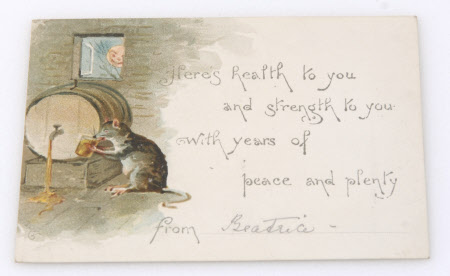 Here's health to you
and strength to you
with years of
peace and plenty
from Beatrice -